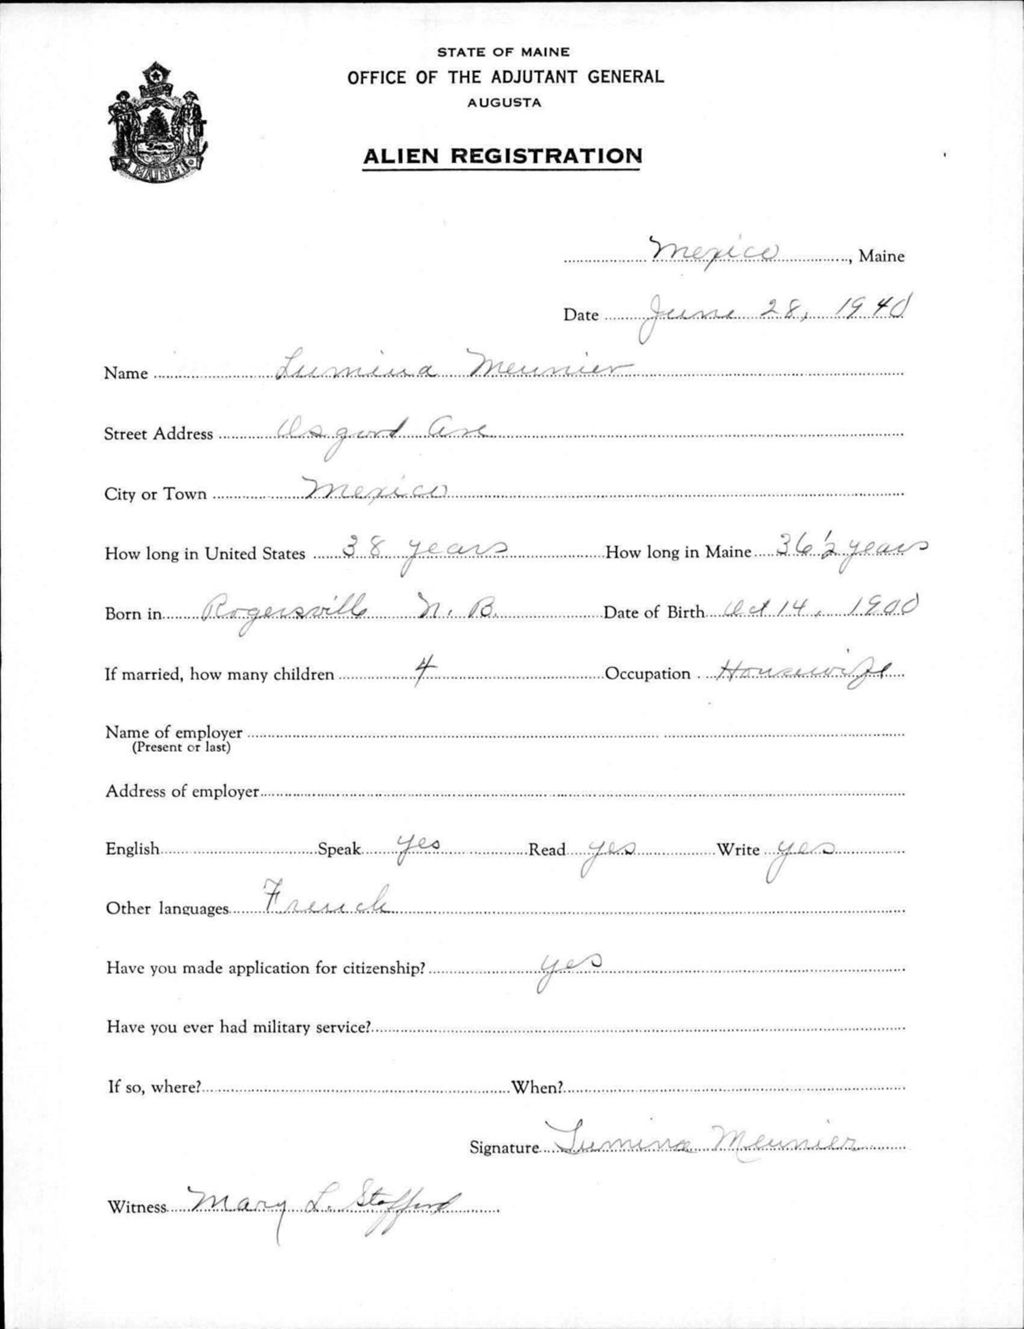 STATE OF MAINE
OFFICE OF THE ADJUTANT GENERAL
AUGUSTA
ALIEN REGISTRATION
MAINE
Mexico, Maine
Date June 28, 1940
Name Lumina Meunier
Street Address Osgood Ave
City or Town Mexico
How long in United States 38 years How long in Maine 36 1/2 years
Born in Rogersville N. B. Date of Birth Oct 14, 1900
If married, how many children 4 Occupation Housewife
Name of employer
(Present or last)
Address of employer
English Speak yes Read yes Write yes
Other languages French
Have you made application for citizenship? yes
Have you ever had military service?
If so, where? When?
Signature Lumina Meunier
Witness Mary L. Stafford